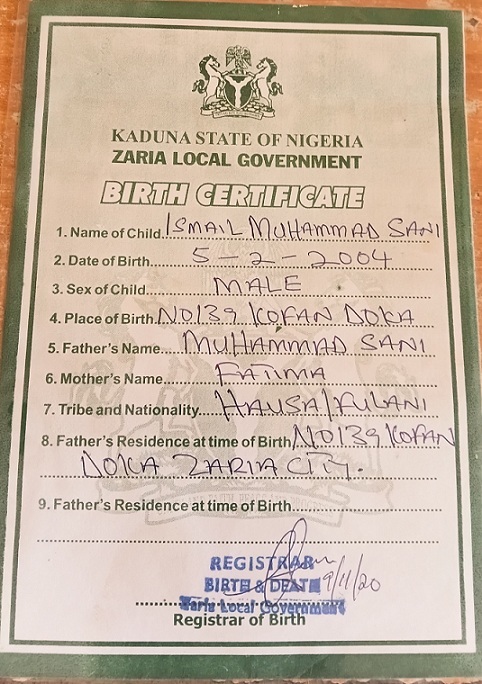 KADUNA STATE OF NIGERIA
ZARIA LOCAL GOVERNMENT
BIRTH CERTIFICATE
1. Name of Child ISMAIL MUHAMMAD SANI
2. Date of Birth 5-2-2004
3. Sex of Child MALE
4. Place of Birth NO139 KOFAN DOKA
5. Father's Name MUHAMMAD SANI
6. Mother's Name FATIMA
7. Tribe and Nationality HAUSA/FULANI
8. Father's Residence at time of Birth NO139 KOFAN
DOKA ZARIA CITY.
9. Father's Residence at time of Birth
REGISTRAR
BIRTH & DEATH 9/11/20
Zaria Local Government
Registrar of Birth